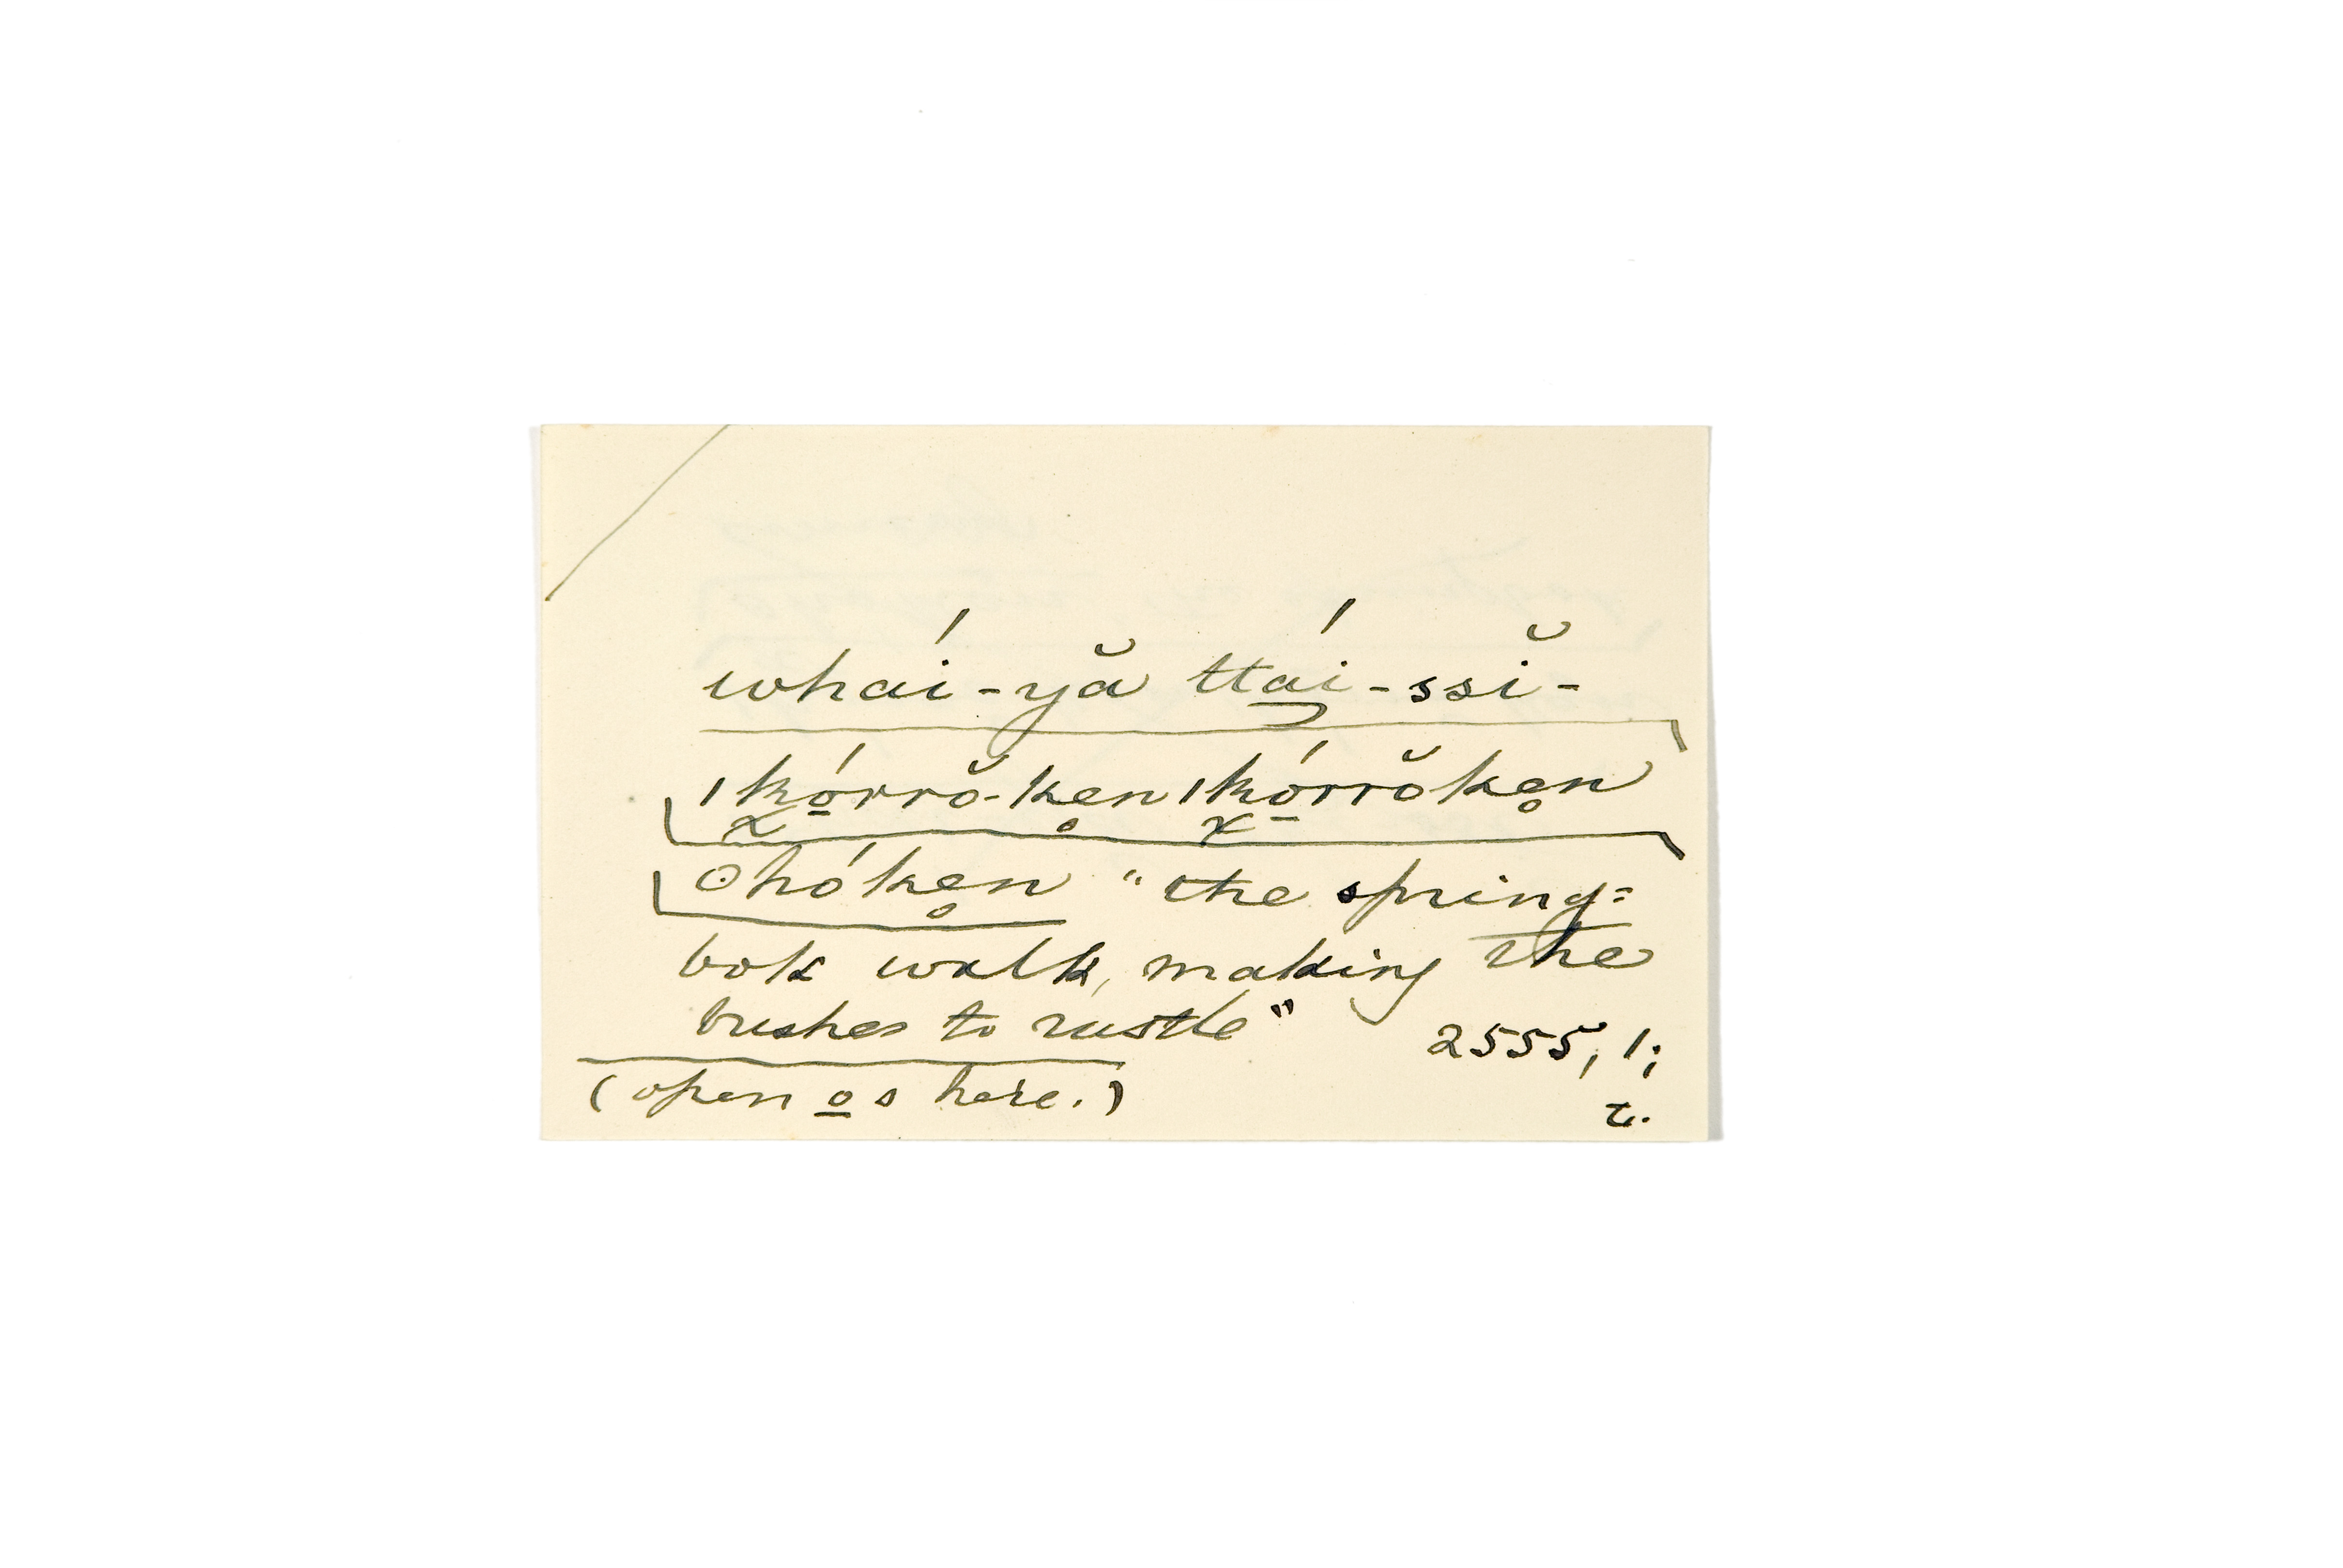 whái-yă ttái-ssĭ-
|kó̱rrŏ-ken̥ |kó̱rrŏken̥
ʘhóken̥ "the spring=
bok walk, making the
bushes to rustle" 2555, 1;
(open o̱s here.) t.